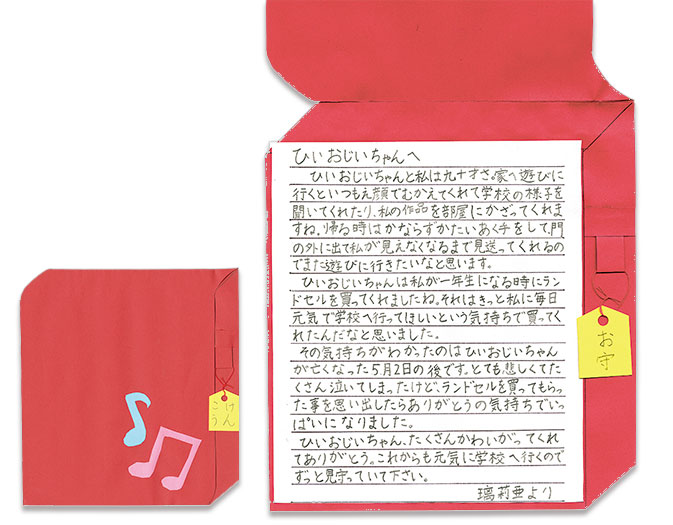 けん
こう
ひいおじいちゃんへ
ひいおじいちゃんと私は九十才さ。家へ遊びに
行くといつもえ顔でむかえてくれて学校の様子を
聞いてくれたり、私の作品を部屋にかざってくれま
すね。帰る時はかならずかたいあく手をして、門
の外に出て私が見えなくなるまで見送ってくれるの
でまた遊びに行きたいなと思います。
ひいおじいちゃんは私が一年生になる時にラン
ドセルを買ってくれましたね。それはきっと私に毎日
元気で学校へ行ってほしいという気持ちで買ってく
れたんだなと思いました。
その気持ちがわかったのはひいおじいちゃん
が亡くなった5月2日の後です。とても悲しくてた
くさん泣いてしまったけど、ランドセルを買ってもらっ
た事を思い出したらありがとうの気持ちでいっ
ぱいになりました。
ひいおじいちゃん、たくさんかわいがってくれ
てありがとう。これからも元気に学校へ行くので
ずっと見守っていて下さい。
璃莉亜より
お守